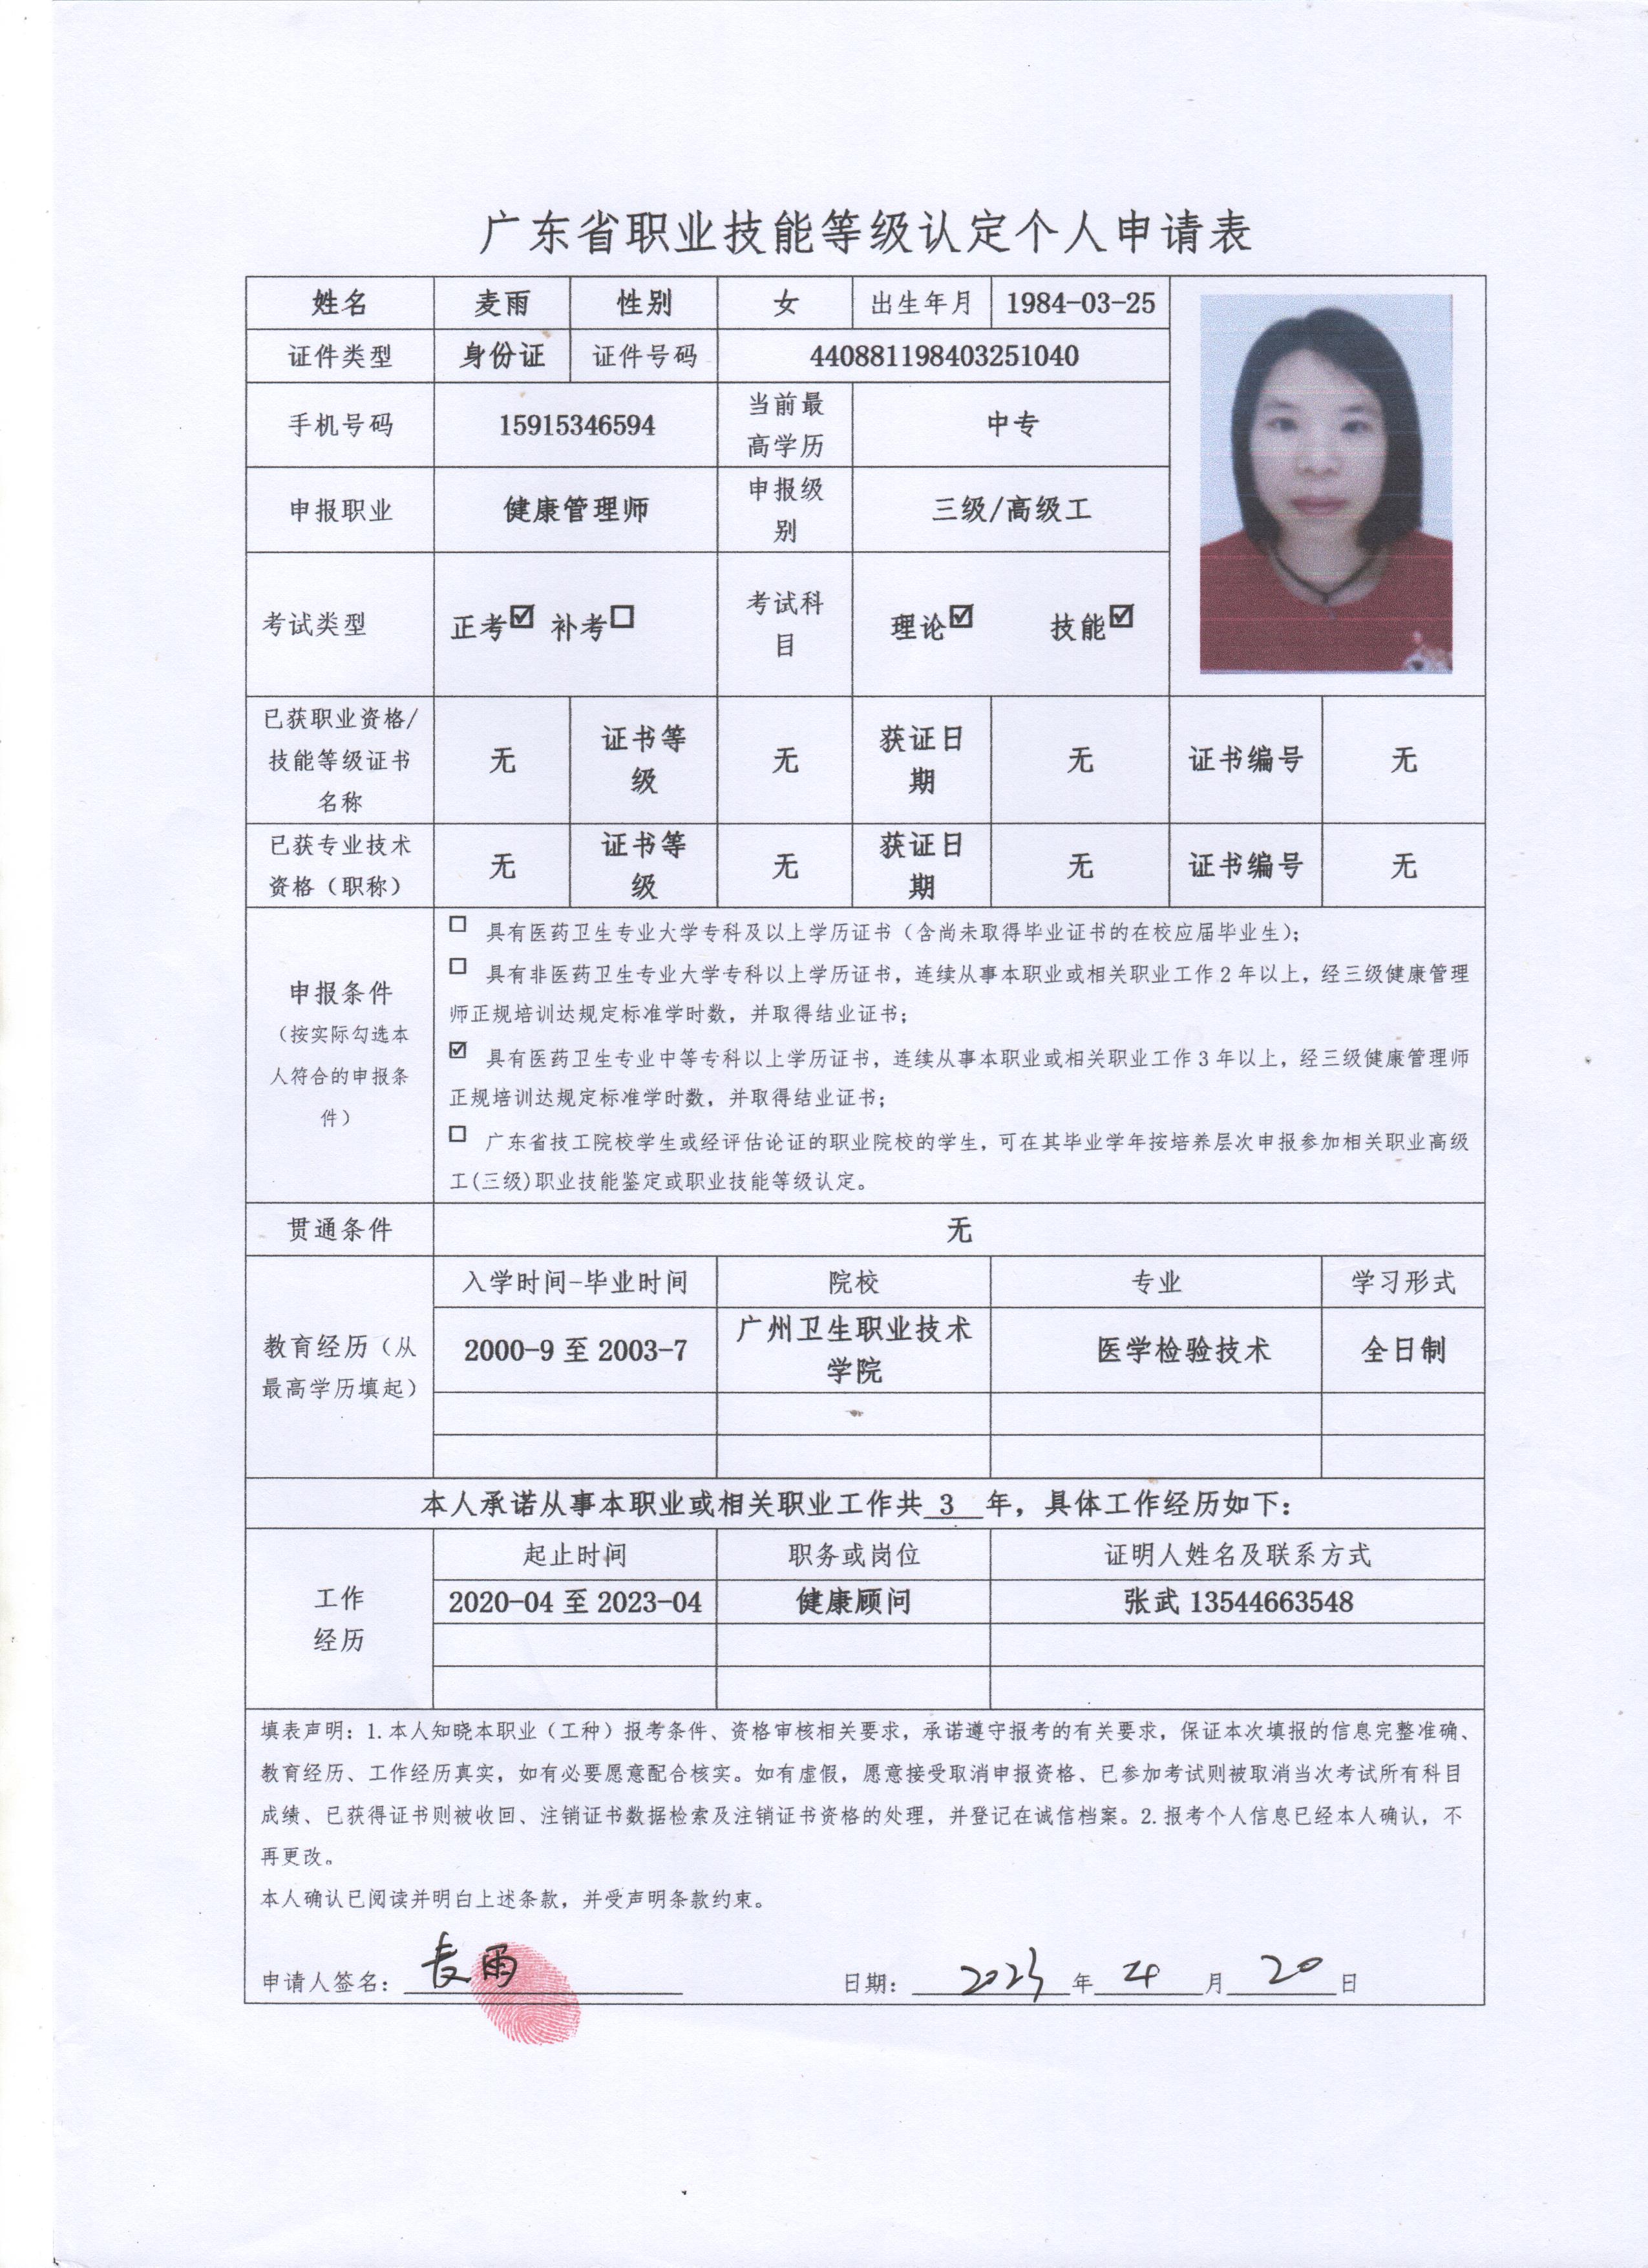 广东省职业技能等级认定个人申请表
姓名 麦雨 性别 女 出生年月 1984-03-25
证件类型 身份证 证件号码 440881198403251040
手机号码 15915346594 当前最高学历 中专
申报职业 健康管理师 申报级别 三级/高级工
考试类型 正考☑ 补考☐ 考试科目 理论☑ 技能☑
已获职业资格/技能等级证书名称 无 证书等级 无 获证日期 无 证书编号 无
已获专业技术资格（职称） 无 证书等级 无 获证日期 无 证书编号 无
申报条件
（按实际勾选本人符合的申报条件）
☐ 具有医药卫生专业大学专科及以上学历证书（含尚未取得毕业证书的在校应届毕业生）；
☐ 具有非医药卫生专业大学专科以上学历证书，连续从事本职业或相关职业工作2年以上，经三级健康管理
师正规培训达规定标准学时数，并取得结业证书；
☑ 具有医药卫生专业中等专科以上学历证书，连续从事本职业或相关职业工作3年以上，经三级健康管理师
正规培训达规定标准学时数，并取得结业证书；
☐ 广东省技工院校学生或经评估论证的职业院校的学生，可在其毕业学年按培养层次申报参加相关职业高级
工(三级)职业技能鉴定或职业技能等级认定。
贯通条件 无
教育经历（从最高学历填起）
入学时间-毕业时间 院校 专业 学习形式
2000-9 至 2003-7 广州卫生职业技术学院 医学检验技术 全日制
本人承诺从事本职业或相关职业工作共 3 年，具体工作经历如下：
工作经历
起止时间 职务或岗位 证明人姓名及联系方式
2020-04 至 2023-04 健康顾问 张武 13544663548
填表声明：1.本人知晓本职业（工种）报考条件、资格审核相关要求，承诺遵守报考的有关要求，保证本次填报的信息完整准确、
教育经历、工作经历真实，如有必要愿意配合核实。如有虚假，愿意接受取消申报资格、已参加考试则被取消当次考试所有科目
成绩、已获得证书则被收回、注销证书数据检索及注销证书资格的处理，并登记在诚信档案。2.报考个人信息已经本人确认，不
再更改。
本人确认已阅读并明白上述条款，并受声明条款约束。
申请人签名：麦雨 日期：2023年4月20日